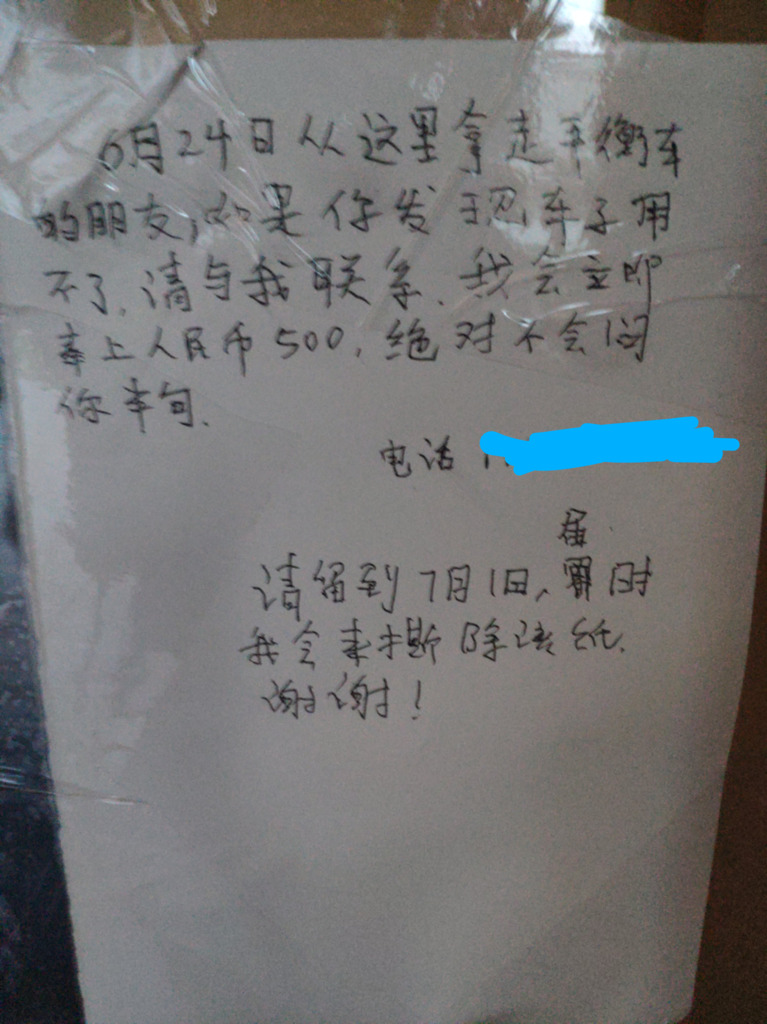 6月24日从这里拿走平衡车
的朋友,如果你发现车子用
不了,请与我联系.我会立即
奉上人民币500,绝对不会问
你半句.
电话
届
请留到7月1日,时
我会来撕除该纸.
谢谢!